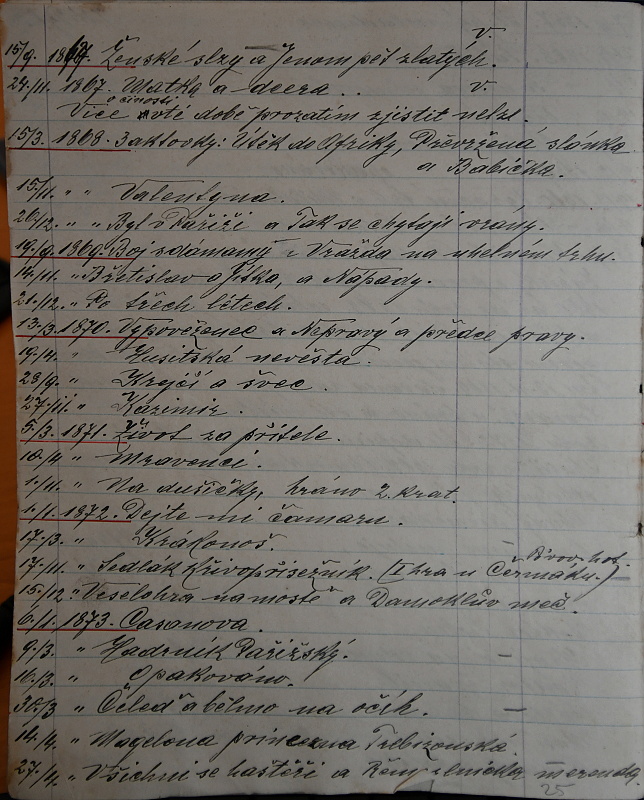 V.
15/9. 1867. Ženské slzy a Jenom pět zlatých.
24./11. 1867. Matka a dcera . . V.
o činosti
Více v té době prozatím zjistit nelze.
15/3. 1868. 3 aktovky: Útěk do Afriky, Převržená slánka
a Babička.
15/11. " " Valentyna.
26/12. " " Byl v Paříži a Tak se chytají vrány.
19./9. 1869. Boj s dámamy a Vražda na uhelném trhu.
14./11. " Břetislav a Jitka, a Nápady.
21./12. " Po třech létech.
13./3. 1870. Vypověženec a Nepravý a předce pravy.
19./4. " Husitská nevěsta.
28/9. " Krejčí a švec.
27./11. " Kazimir.
5./3. 1871. Život za přítele.
10./4 " Mravenci.
1./11. " Na dušičky, hráno 2. krat.
1./1. 1872. Dejte mi čamaru.
17./3. " Krakonoš.
17./11. " Sedlák křivopřísežník. (I hra u Čermáku.) Pivov. hos.
15./12. " Veselohra na mostě a Damoklův meč.
6./1. 1873. Casanova.
9./3. " Hadrník Pařížský. –
16./3. " Opakováno.
30./3 " Čeleď a bělmo na očích. –
14./4. " Magelona princezna Trebizonská.
27./4. " Všichni se haštěři a merenda
25